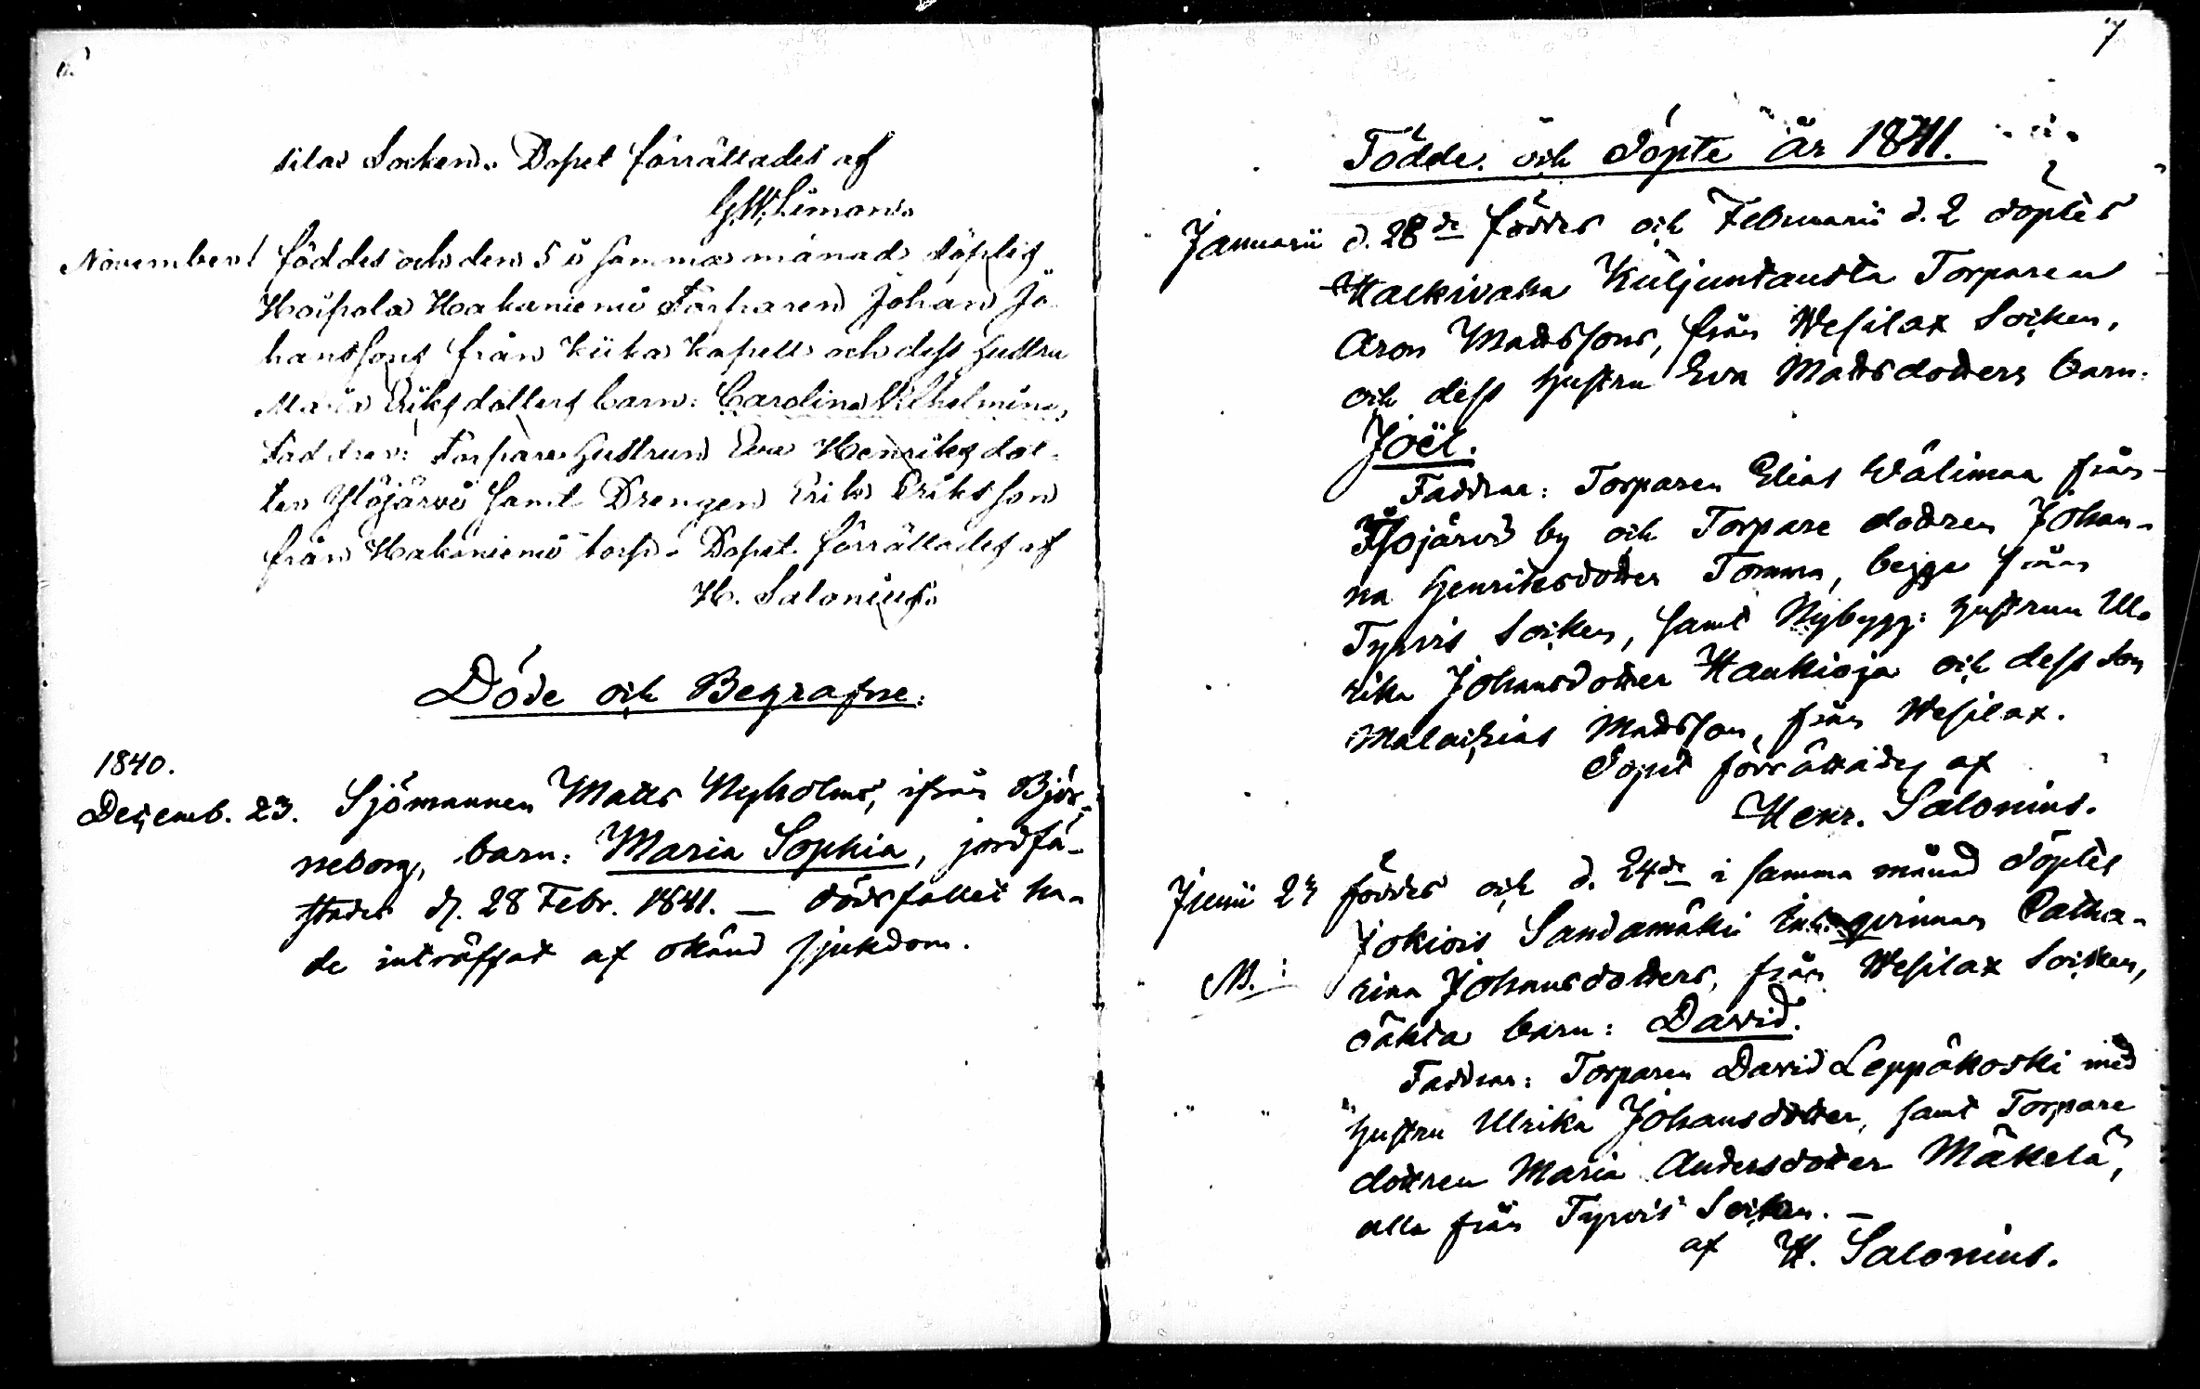 silax Socken. Dopet förrättades af
G.W. Limon.
November 1 föddes och den 5 i samma månad döptes
Hoipola Hakaniemi Torparen Johan Jo-
hanssons från Kiika Kapell och dess hustru
Maria Eriksdotters barn: Carolina Wilhelmina
Faddrar: Torpare hustrun Eva Henriksdot-
ter Ylöjärvi samt Drengen Erik Eriksson
från Hakaniemi torp. Dopet förrättades af
H. Salonius.
Döde och Begrafne:
1840.
Decemb. 23. Sjömannen Matts Nyholms, ifrån Björ-
neborg, barn: Maria Sophia, jordfä-
stades d. 28 Febr. 1841. — dödsfallet ha-
de inträffat af okänd sjukdom.
7
Födde och döpte År 1841.
Januarii d. 28de föddes och Februarii d. 2 döptes
Halkivaha Kuljuntausta Torparen
Aron Mattssons, från Wesilax Socken,
och dess hustru Eva Mattsdotters barn:
Joël.
Faddrar: Torparen Elias Wälimaa från
Illojärvi by och Torpare dottren Johan-
na Henriksdotter Tomma, begge från
Tyrvis Socken, samt Nybygg: hustrun Ul-
rika Johansdotter Haukioja och dess son
Malachias Mattsson, från Wesilax.
Dopet förrättades af
Henr. Salonius.
Junii 23 föddes och d. 24de i samma månad döptes
Jokiois Sandamäki Inh.qvinnan Catha-
rina Johansdotters, från Wesilax Socken,
NB.:
oäkta barn: David.
Faddrar: Torparen David Leppäkoski med
hustru Ulrika Johansdotter, samt Torpare
dottren Maria Andersdotter Mäkelä,
alla från Tyrvis Socken. —
af H. Salonius.